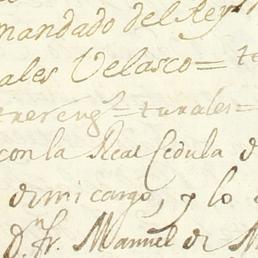 mandado del Rey
ales Velasco = te
turales =
con la Real Cedula d
de mi cargo, y lo
Dn. Fr. Manuel de M